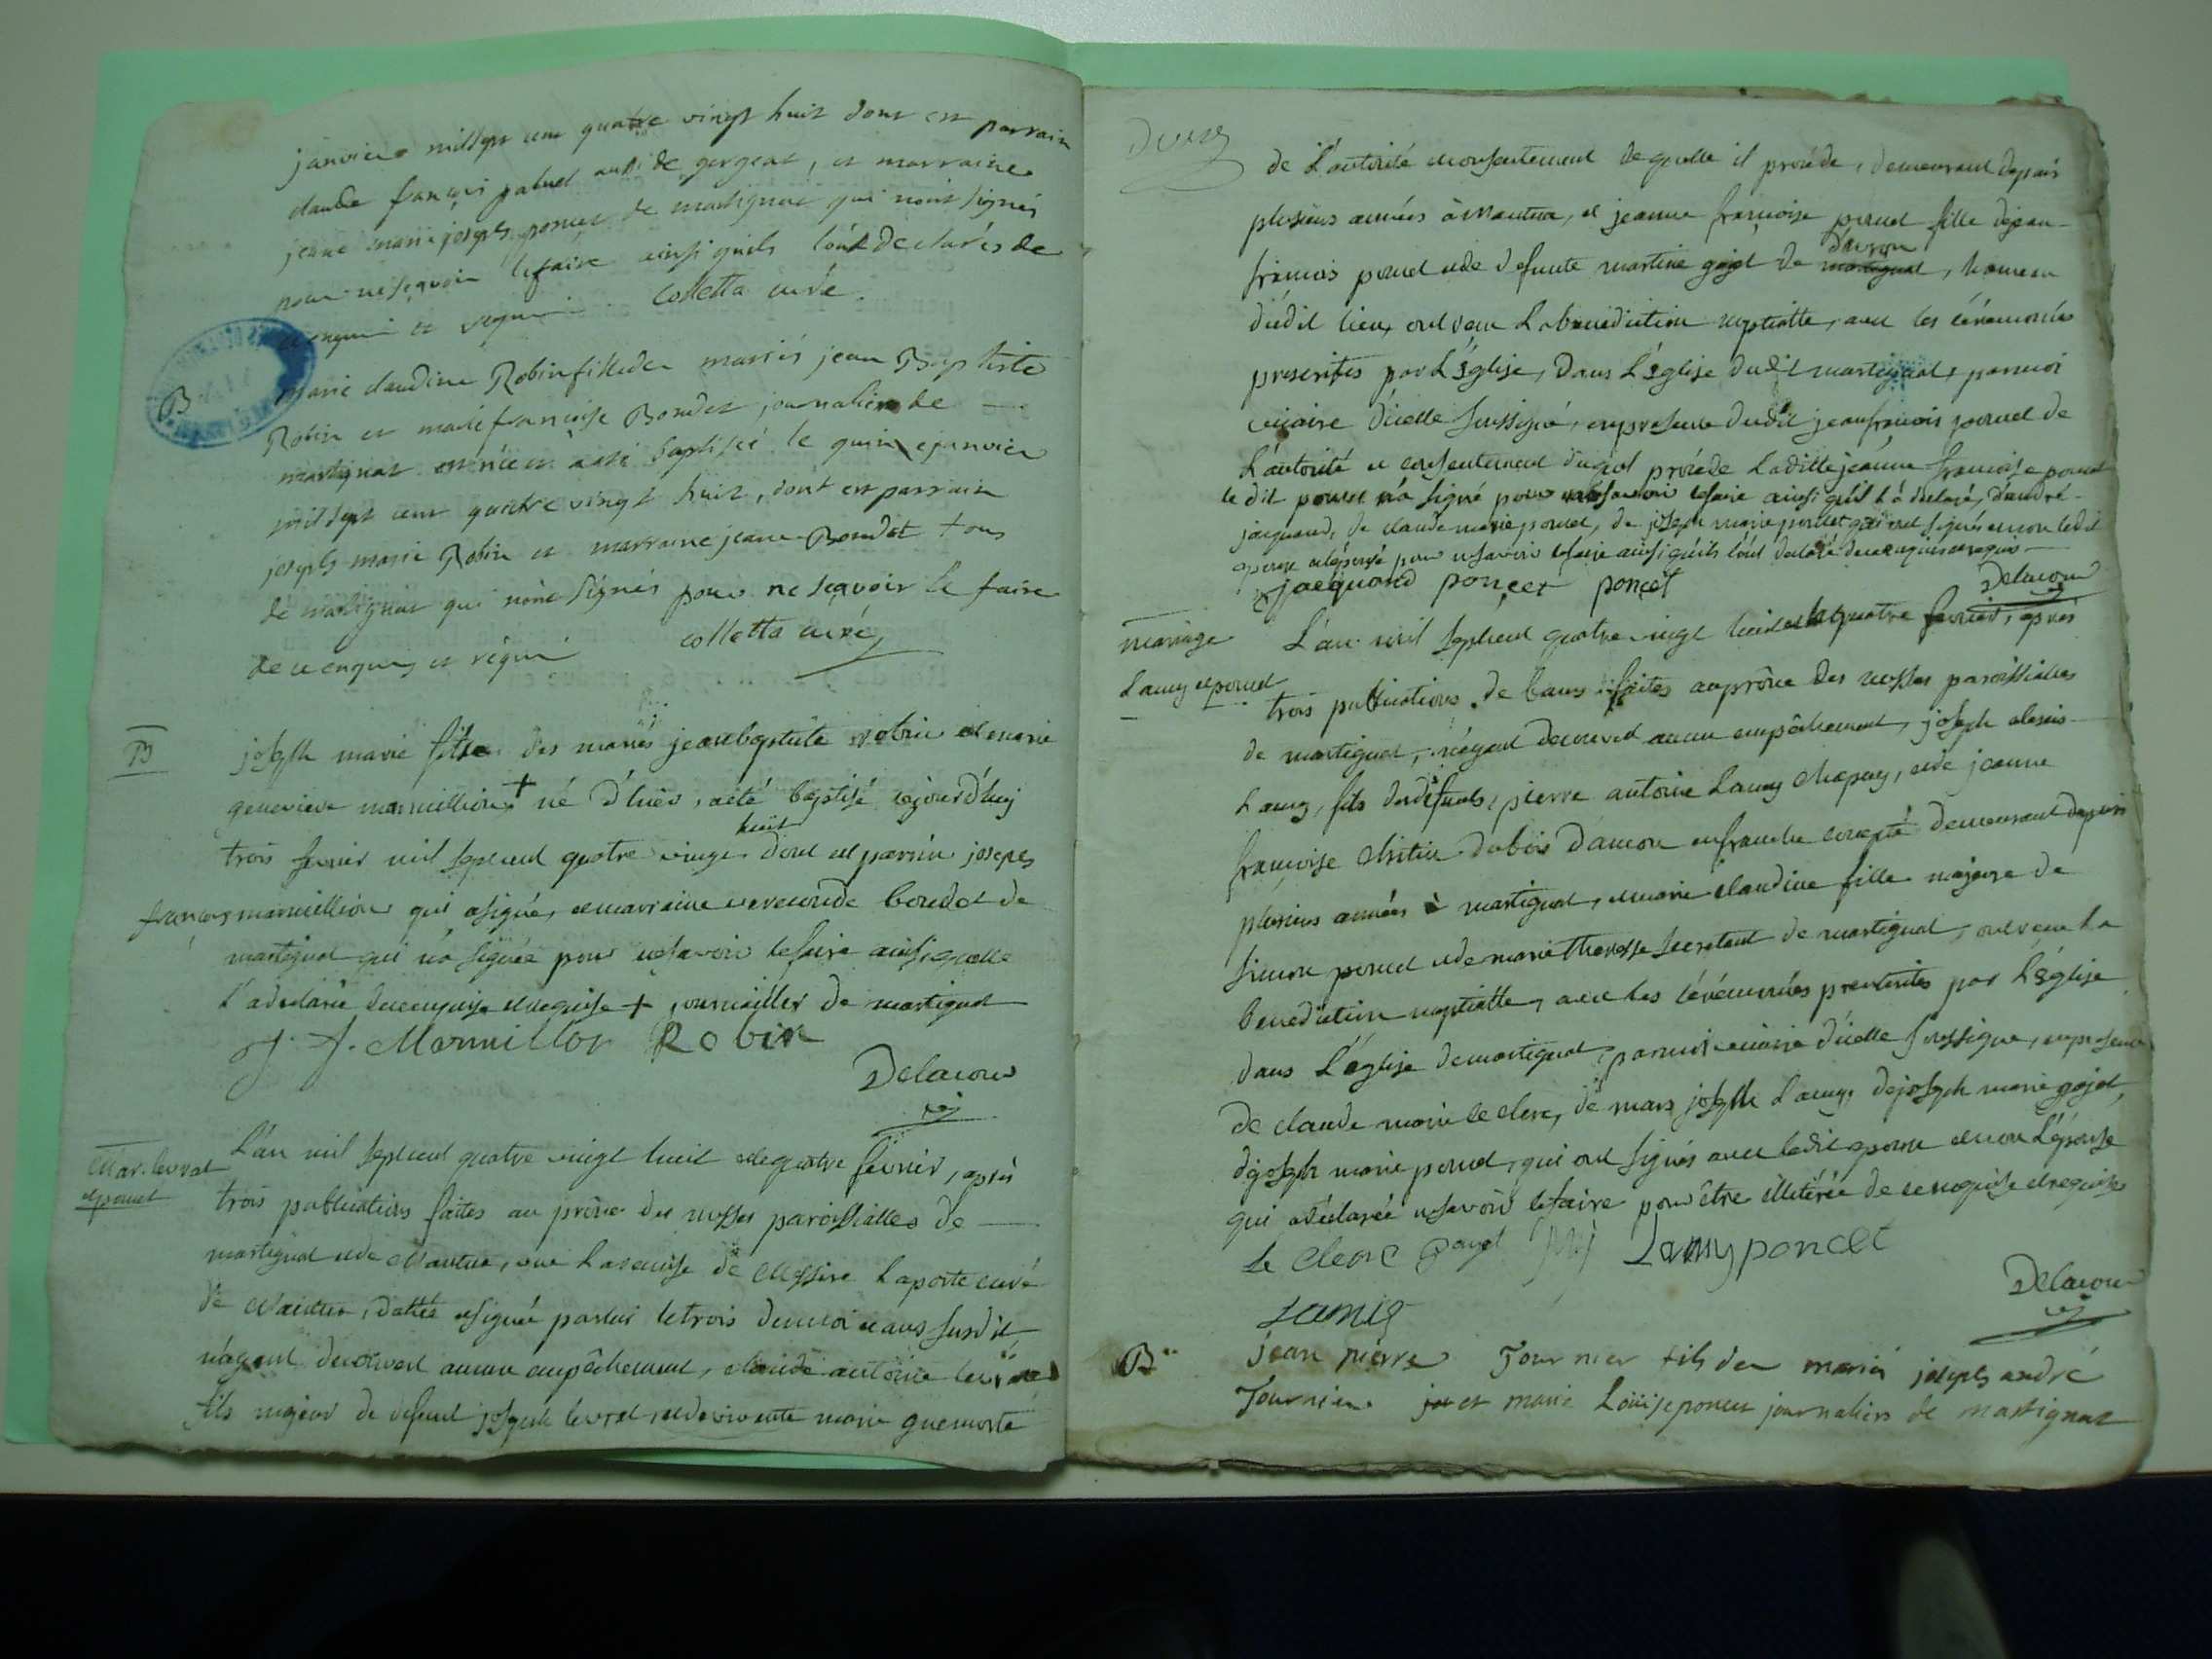 janvier mil sept cent quatre vingt huit dont est parrain
claude françois paluel aussi de gergeat, et marraine
jeanne marie joseph poncet de martignat qui n'ont signés
pour ne sçavoir le faire ainsi quils l'ont declarés de
ce enquis et requis. Colletta curé.
B marie claudine Robin fille des mariés jean Baptiste
Robin et marie françoise Boudet journaliers de
martignat est née et a été baptisée le quinze janvier
mil sept cent quatre vingt huit, dont est parrain
joseph-marie Robin et marraine jeanne Boudet tous
de martignat qui n'ont signés pour ne sçavoir le faire
de ce enquis et requis colletta curé
B joseph marie fils des mariés jean baptiste robin et marie
genevieve marmillion + né d'hier, a été baptisé aujourd'huy
trois fevrier mil sept cent quatre vingt huit dont est parrin joseph
françois marmillion qui a signé, et marraine boudet de
martignat qui n'a signée pour ne savoir le faire ainsi quelle
l'a declarée de ce enquise et requise + journaillier de martignat
J. f. Marmillon Robin
Delacour
vi
Mar. levrat
et poncet
L'an mil sept cent quatre vingt huit et le quatre fevrier, après
trois publications faites au prône des messes paroissialles de
martignat et de Nantua, vue la remise de Messire Laporte curé
de Nantua, dattée et signée par lui le trois du mois et ans susdit,
n'ayant decouvert aucun empêchement, claude antoine levrat
fils majeur de defunt joseph levrat et de vivante marie guemorte
deux
de l'autorité et consentement de quelle il procède, demeurant depuis
plusieurs années à Nantua, et jeanne françoise poncet fille de jean-
françois poncet et de defunte martine gojet de martignat, hameau
dudit lieu, ont reçu la benediction nuptiatte, avec les cérémonies
prescrites par L'Église, dans L'Église dudit martignat, par moi
vicaire d'icelle soussigné, en presence dudit jean françois poncet de
l'autorité et consentement duquel procède ladite jeanne françoise poncet
le dit poncet n'a signé pour ne savoir le faire ainsi qu'il l'a declaré, d'andré-
jacquand, de claude marie poncet, de joseph marie poncet qui ont signés et non ledit
epoux et l'épouse pour ne savoir le faire ainsi qu'ils l'ont declaré de ce enquis et requis
jacquand poncet poncet
Delacour
vi
mariage
Lamy et poncet
L'an mil sept cent quatre vingt huit et le quatre fevrier, après
trois publications de bans faites au prône des messes paroissialles
de martignat, n'ayant decouvert aucun empêchement, joseph alexis
Lamy, fils des defunts, pierre antoine Lamy Chapuy, et de jeanne
françoise dubois d'arinthod en franche comté demeurant depuis
plusieurs années à martignat, et marie claudine fille majeure de
simon poncet et de marie therese secretant de martignat, ont reçu la
benediction nuptiatte, avec les cérémonies prescrites par L'Église
dans L'église de martignat, par moi vicaire d'icelle soussigné, en presence
de claude marie le clerc, de marc joseph Lamy, de joseph marie gojet,
de joseph marie poncet, qui ont signés avec ledit epoux et non L'épouse
qui a déclarée ne savoir le faire pour être illitérée de ce enquise et requise
le clerc Lamy poncet
Lamy
Delacour
vi
B jean pierre Tournier fils des mariés joseph andré
Tournier et marie Louise poncet journaliers de martignat